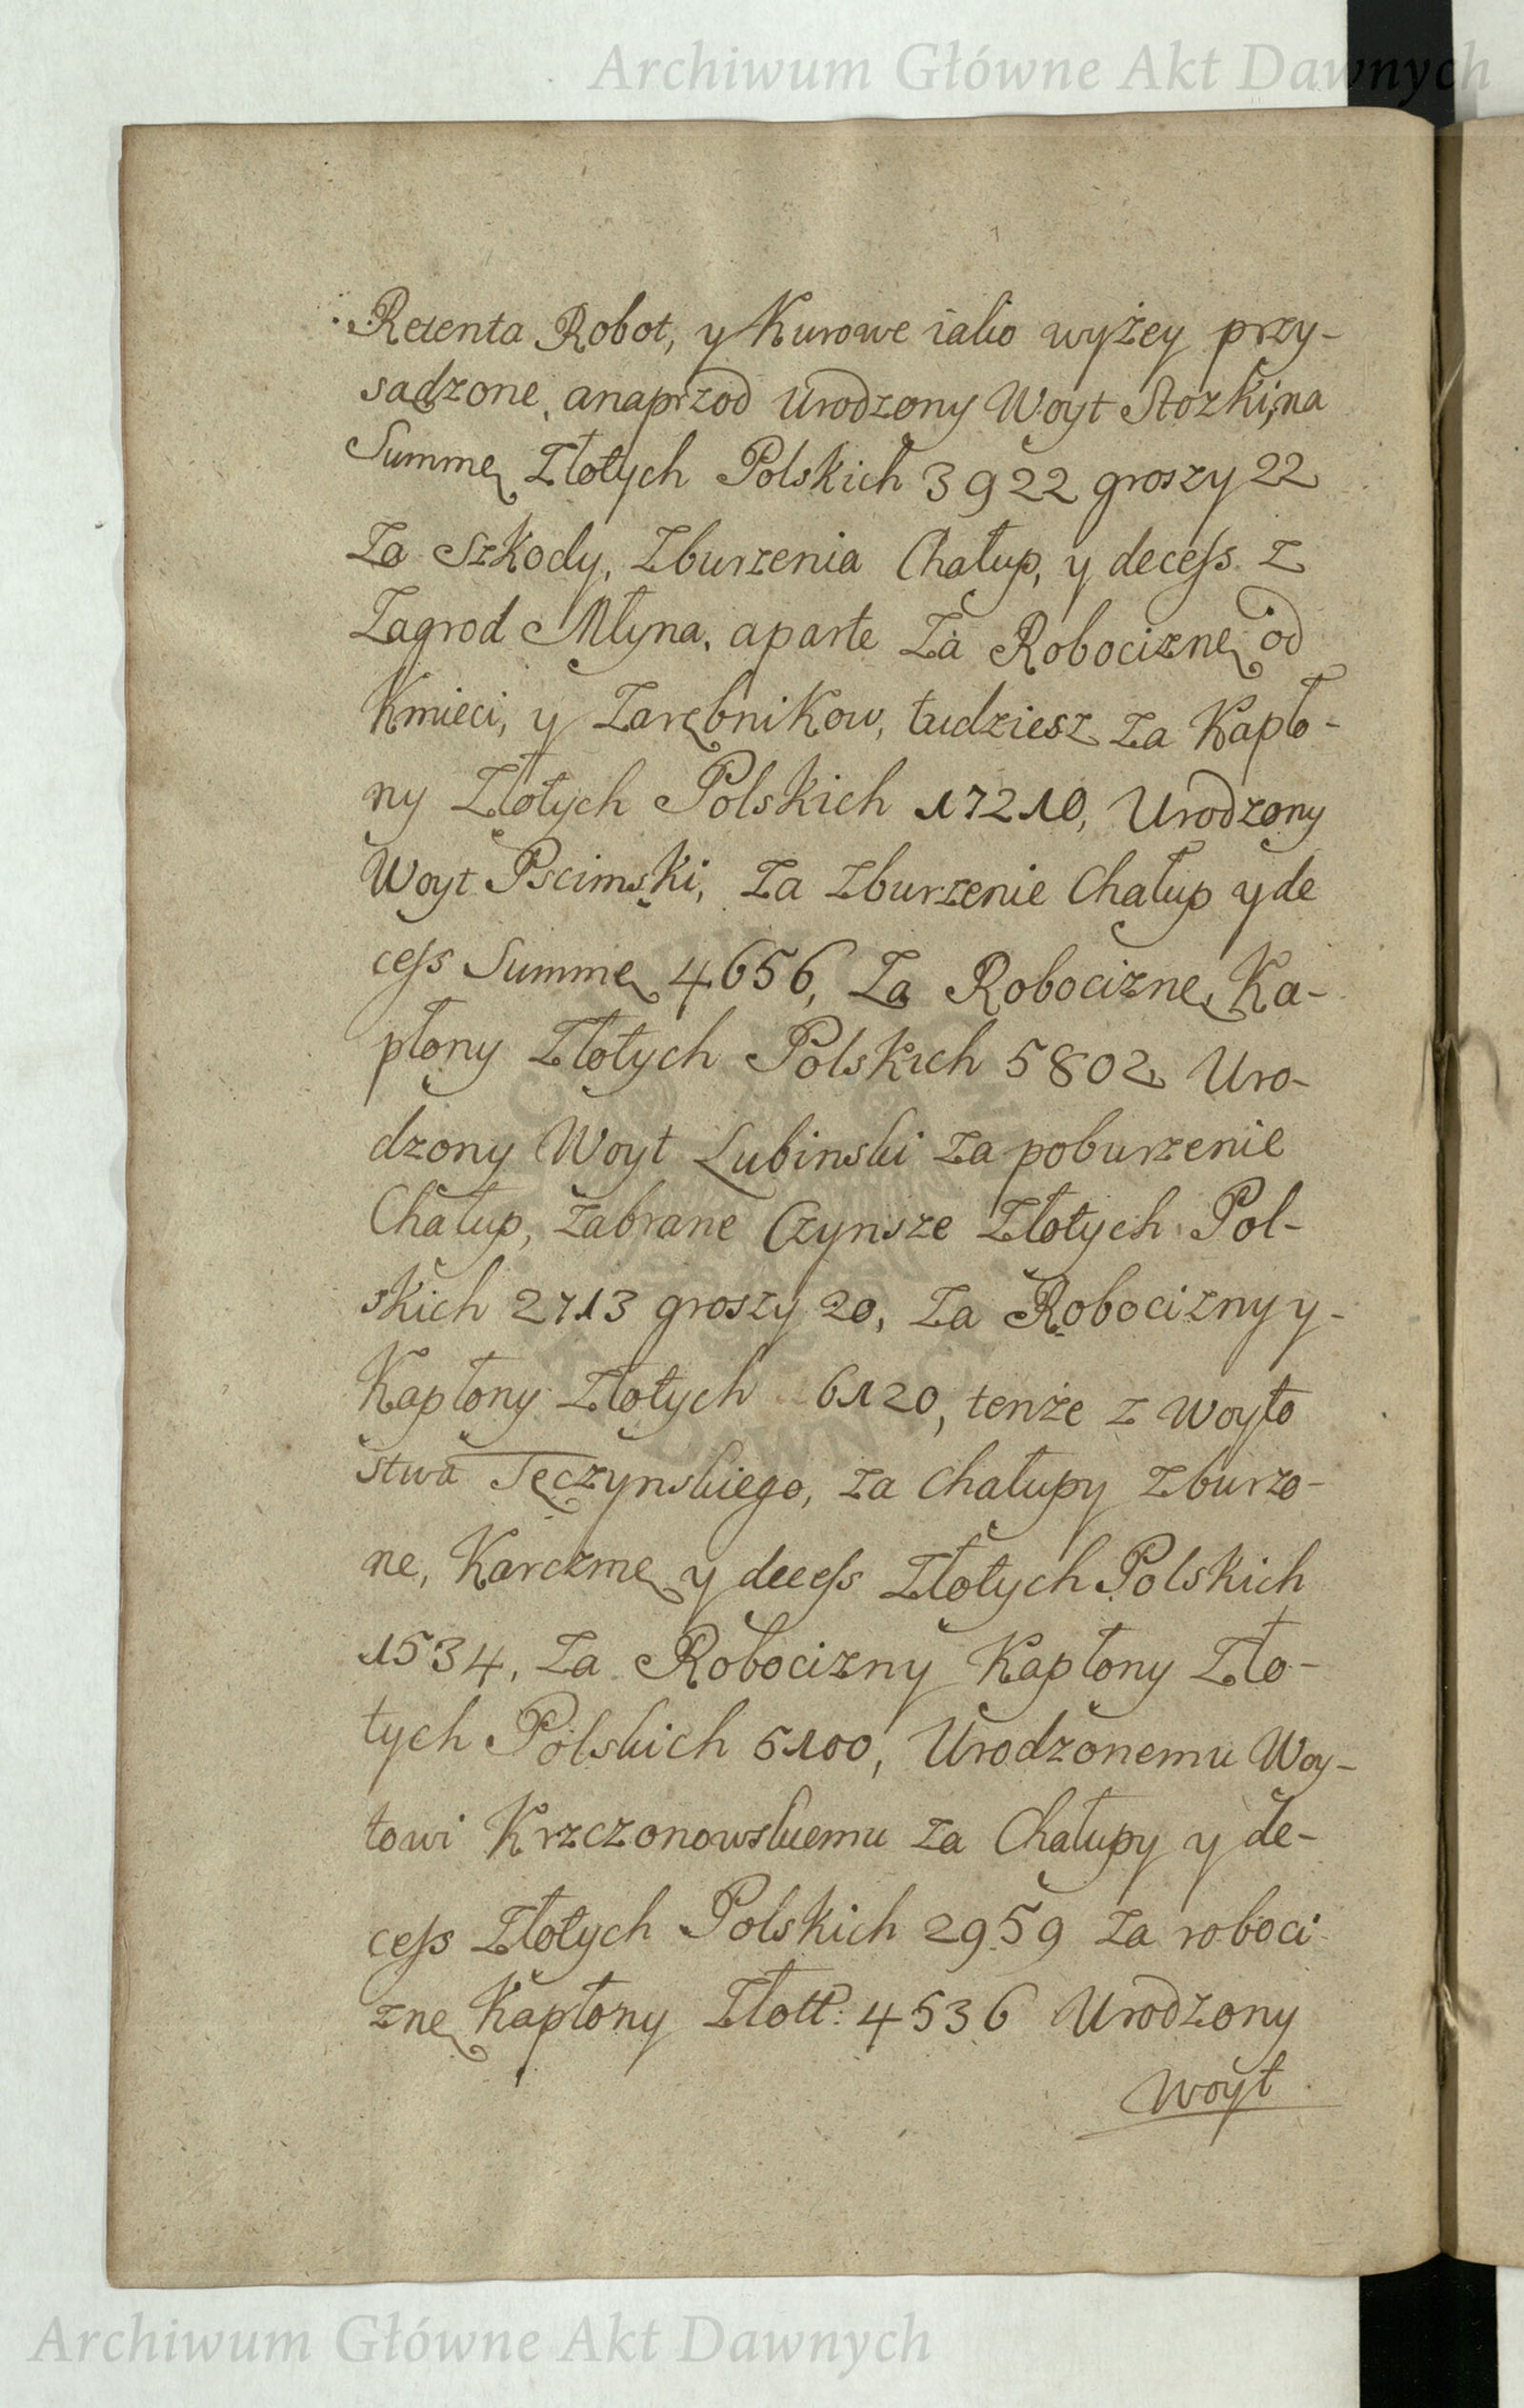 Archiwum Główne Akt Dawnych
Retenta Robot, y Kurowe iako wyżey przy-
sadzone, anaprzod Urodzony Woyt Stozki, na
Summę Złotych Polskich 3922 groszy 22
Za Szkody, Zburzenia Chałup, y decess z
Zagrod Młyna, aparte Za Robociznę od
Kmieci, y Zarębnikow, tudziesz za Kapło-
ny Złotych Polskich 17210, Urodzony
Woyt Pscimski, Za Zburzenie Chałup y de
cess Summę 4656, Za Robociznę, Ka-
płony Złotych Polskich 5802 Uro-
dzony Woyt Lubinski za poburzenie
Chałup, zabrane Czynsze Złotych Pol-
skich 2713 groszy 20, Za Robocizny y-
Kapłony Złotych 6120, tenże z Woyto
stwa Tęczynskiego, za chałupy zburzo-
ne, Karczmę y decess Złotych Polskich
1534, Za Robocizny Kapłony Zło-
tych Polskich 5100, Urodzonemu Woy-
towi Krzczonowskiemu za Chałupy y de-
cess Złotych Polskich 2959 za roboci
znę Kapłony Złott: 4536 Urodzony
Woyt
Archiwum Główne Akt Dawnych